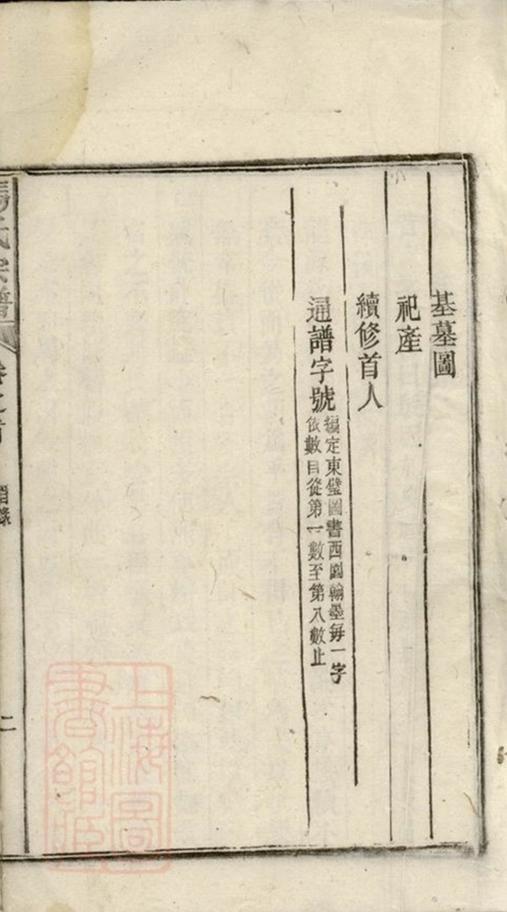 基墓圖
祀產
續修首人
通譜字號
編定東璧圖書西園翰墨每一字
依數目從第一數至第八數止
氏宗譜
卷之首
目錄
二
上海圖
書館